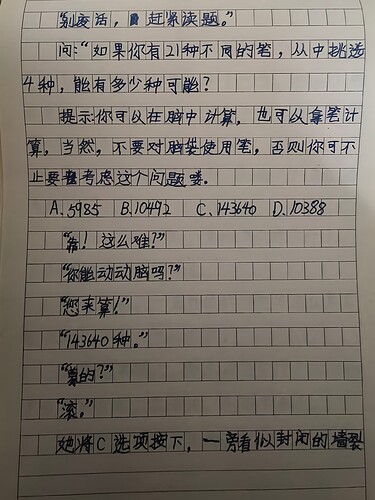 "别废话，赶紧读题。"
问："如果你有21种不同的笔，从中挑选
4种，能有多少种可能？
提示：你可以在脑中计算，也可以拿笔计
算，当然，不要对脑袋使用笔，否则你可不
止要考虑这个问题喽。
A.5985 B.10492 C.143640 D.10388
"靠！这么难？"
"你能动动脑吗？"
"您来算！"
"143640种。"
"蒙的？"
"滚。"
她将C选项按下，一旁看似封闭的墙裂